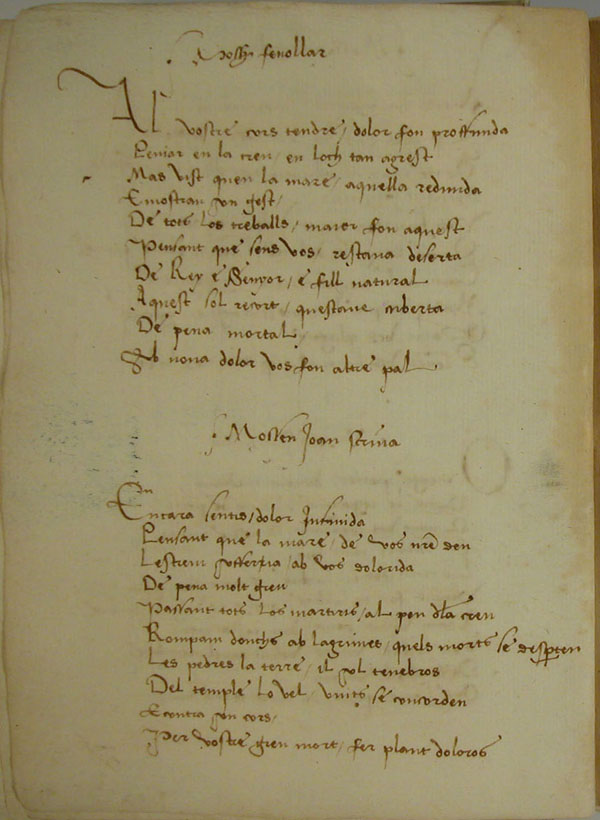 Mossen fenollar
Al vostre cors tendre / dolor fon proffunda
Penjar en la creu / en loch tan agrest
Mas vist quen la mare / aquella redunda
E mostran son gest /
De tots los treballs / maior fon aquest
Pensant que sens vos / restava deserta
De Rey e Senyor / e fill natural
Aquest sol recort / questave cuberta
De pena mortal /
Ab nova dolor vos fon altre pal
Mossen Joan scriva
Encara sentis / dolor Infinida
Pensant que la mare / de vos nre deu
Lestrem sufferia / ab vos dolorida
De pena molt greu
Passant tots los martiris / al peu dla creu
Rompam donchs ab lagrimes / quels morts se desperten
Les pedres la terre / il sol tenebros
Del temple lo vel / vnits se concorden
E contra son cors /
Per vostre greu mort / fer plant doloros